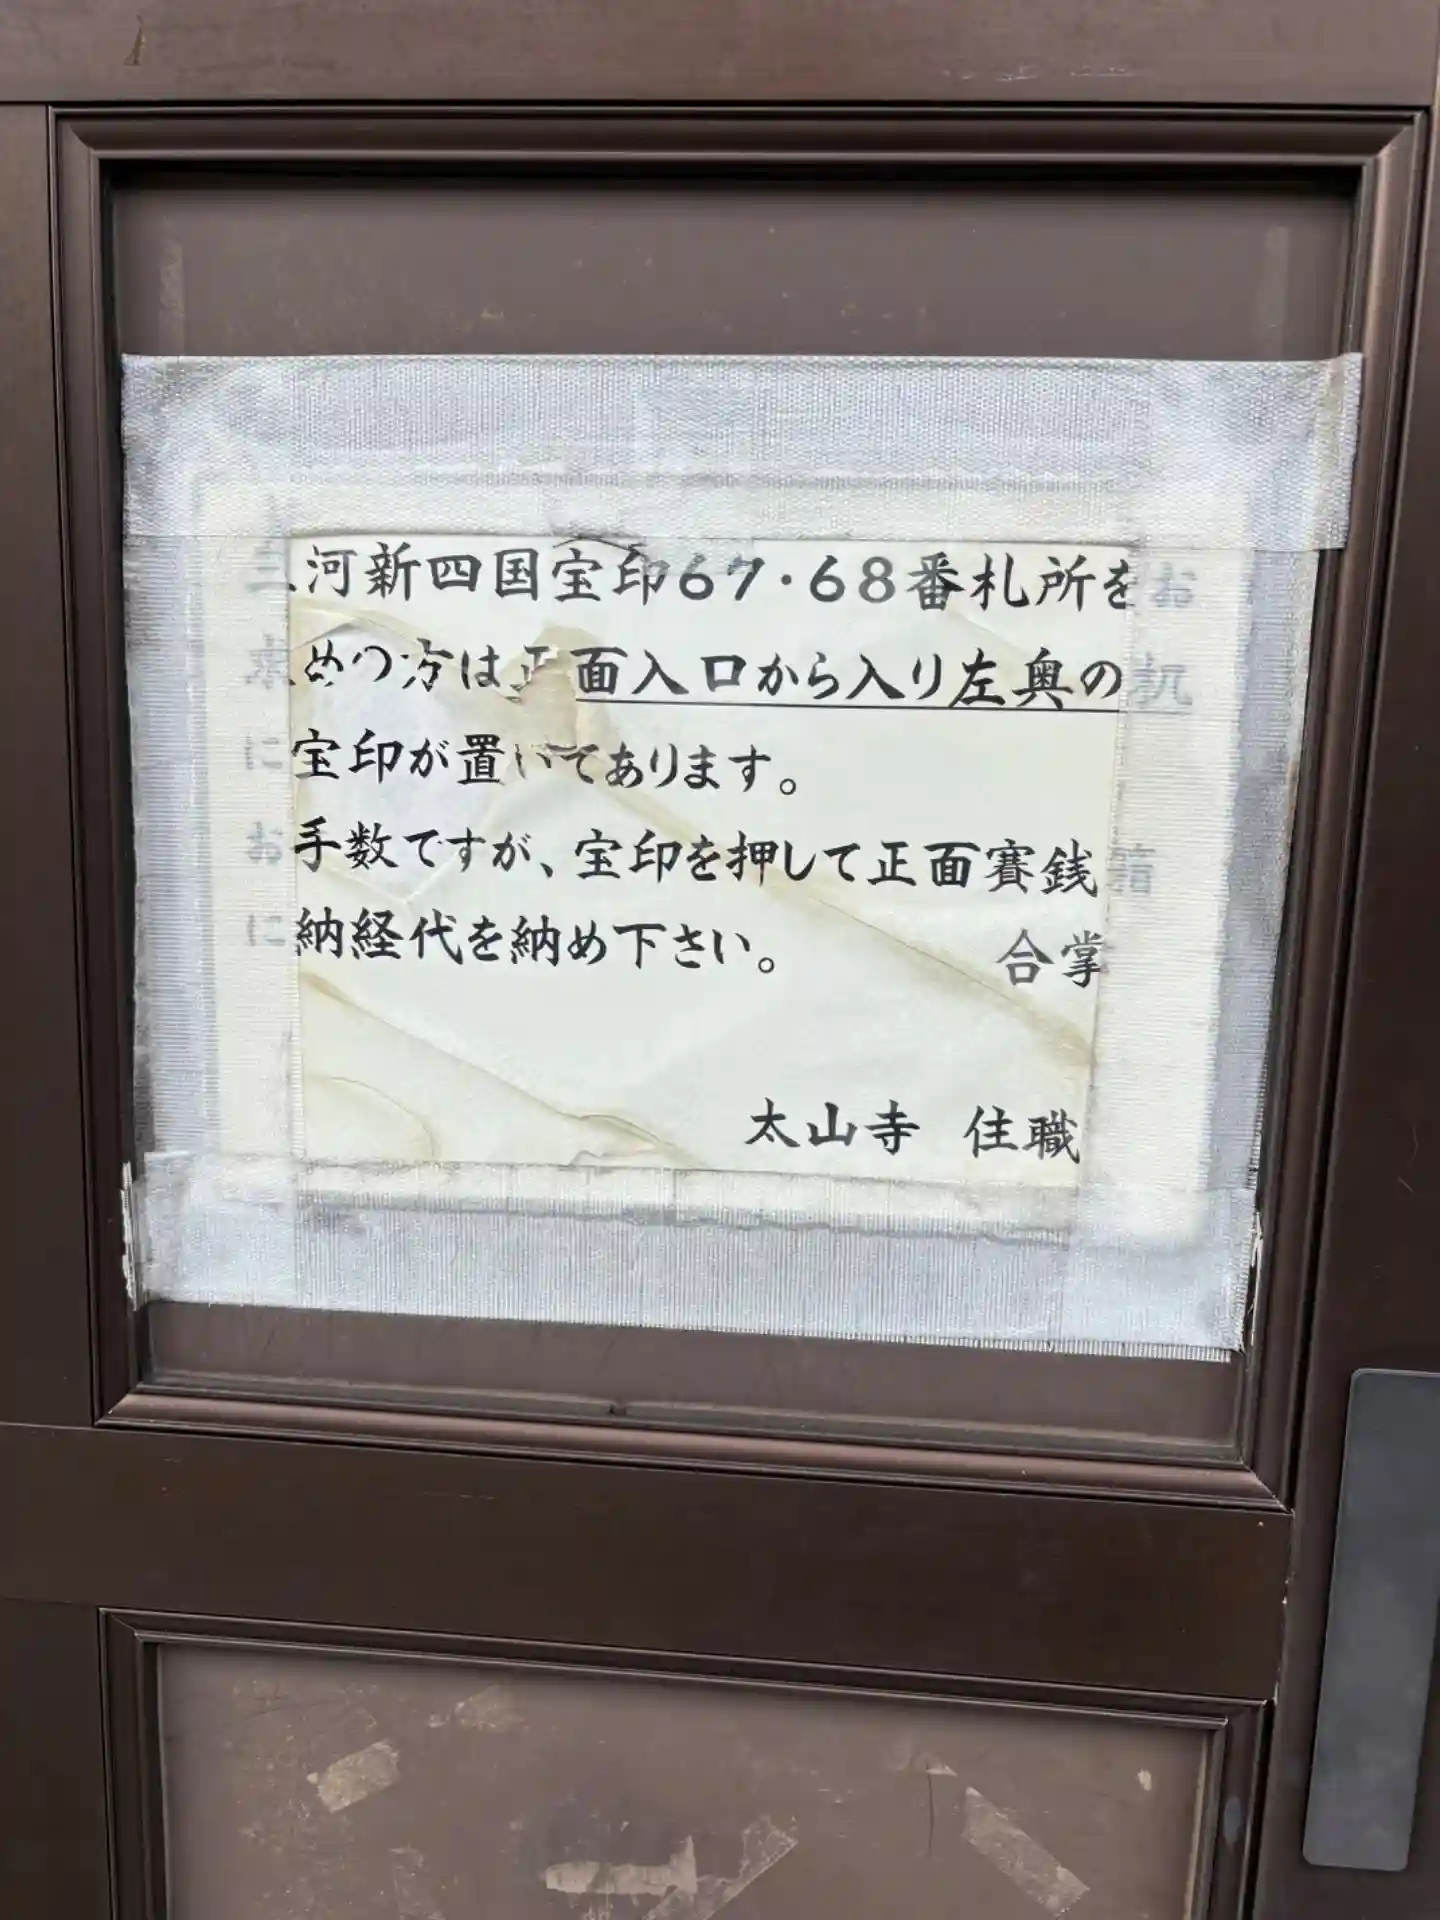 三河新四国宝印67・68番札所をお
求めの方は正面入口から入り左奥の机
に宝印が置いてあります。
お手数ですが、宝印を押して正面賽銭箱
に納経代を納め下さい。 合掌
太山寺 住職